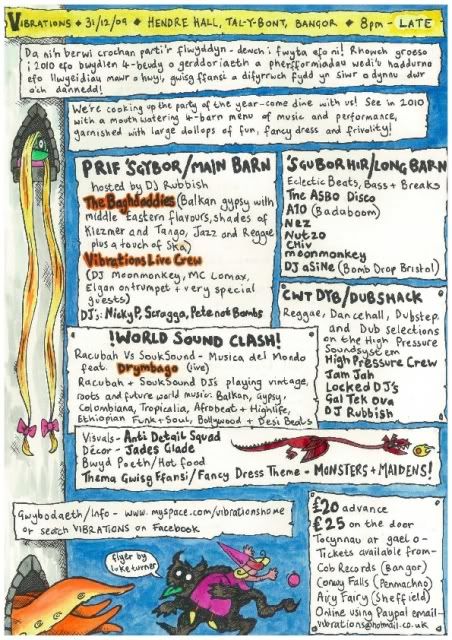 VIBRATIONS • 31/12/09 • HENDRE HALL, TAL-Y-BONT, BANGOR • 8pm - LATE
Da ni'n berwi crochan parti'r flwyddyn - dewch i fwyta efo ni! Rhowch groeso
i 2010 efo bwydlen 4-beudy o gerddoriaeth a pherfformiadau wedi'u haddurno
efo llwyeidiau mawr o hwyl, gwisg ffansi a difyrrwch fydd yn siwr o dynnu dwr
o'ch dannedd!
We're cooking up the party of the year-come dine with us! See in 2010
with a mouthwatering 4-barn menu of music and performance,
garnished with large dollops of fun, fancy dress and frivolity!
PRIF 'SGYBOR/MAIN BARN
hosted by DJ Rubbish
The Baghdaddies (Balkan gypsy with
middle Eastern flavours, shades of
Klezmer and Tango, Jazz and Reggae
plus a touch of Ska)
Vibrations Live Crew
(DJ Moonmonkey, MC Lomax,
Elgan on trumpet + very special
guests)
DJ's: Nicky P, Scragga, Pete not Bombs
'SGUBOR HIR/LONG BARN
Eclectic Beats, Bass + Breaks
The ASBO Disco
A10 (Badaboom)
Nez
Nutzo
CHiV
moonmonkey
DJ aSiNe (Bomb Drop Bristol)
CWT DYB/DUBSHACK
Reggae, Dancehall, Dubstep
and Dub selections
on the High Pressure
Soundsystem
High Pressure Crew
Jam Jah
Locked DJ's
Gal Tek Ova
DJ Rubbish
!WORLD SOUND CLASH!
Racubah Vs SoukSound - Musica del Mondo
feat. Drymbago (live)
Racubah + SoukSound DJs playing vintage,
roots and future world music: Balkan, Gypsy,
Colombiana, Tropicalia, Afrobeat + Highlife,
Ethiopian Funk + Soul, Bollywood + Desi Beats
Visuals - Anti Detail Squad
Décor - Jades Glade
Bwyd Poeth/Hot food
Thema Gwisg Ffansi/Fancy Dress Theme - MONSTERS + MAIDENS!
Gwybodaeth/Info - www.myspace.com/vibrationshome
or search VIBRATIONS on Facebook
flyer by
luke turner
£20 advance
£25 on the door
Tocynnau ar gael o-
Tickets available from-
Cob Records (Bangor)
Conwy Falls (Penmachno)
Airy Fairy (Sheffield)
Online using Paypal email-
vibrations@hotmail.co.uk